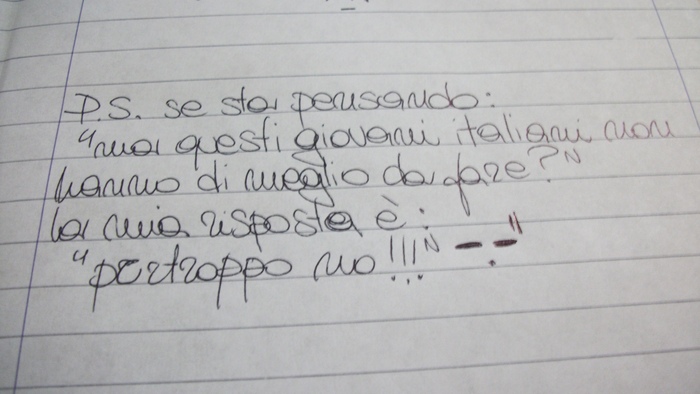 P.S. se stai pensando:
"ma questi giovani italiani non
hanno di meglio da fare?"
la mia risposta è:
"purtroppo no!!!" -.-"